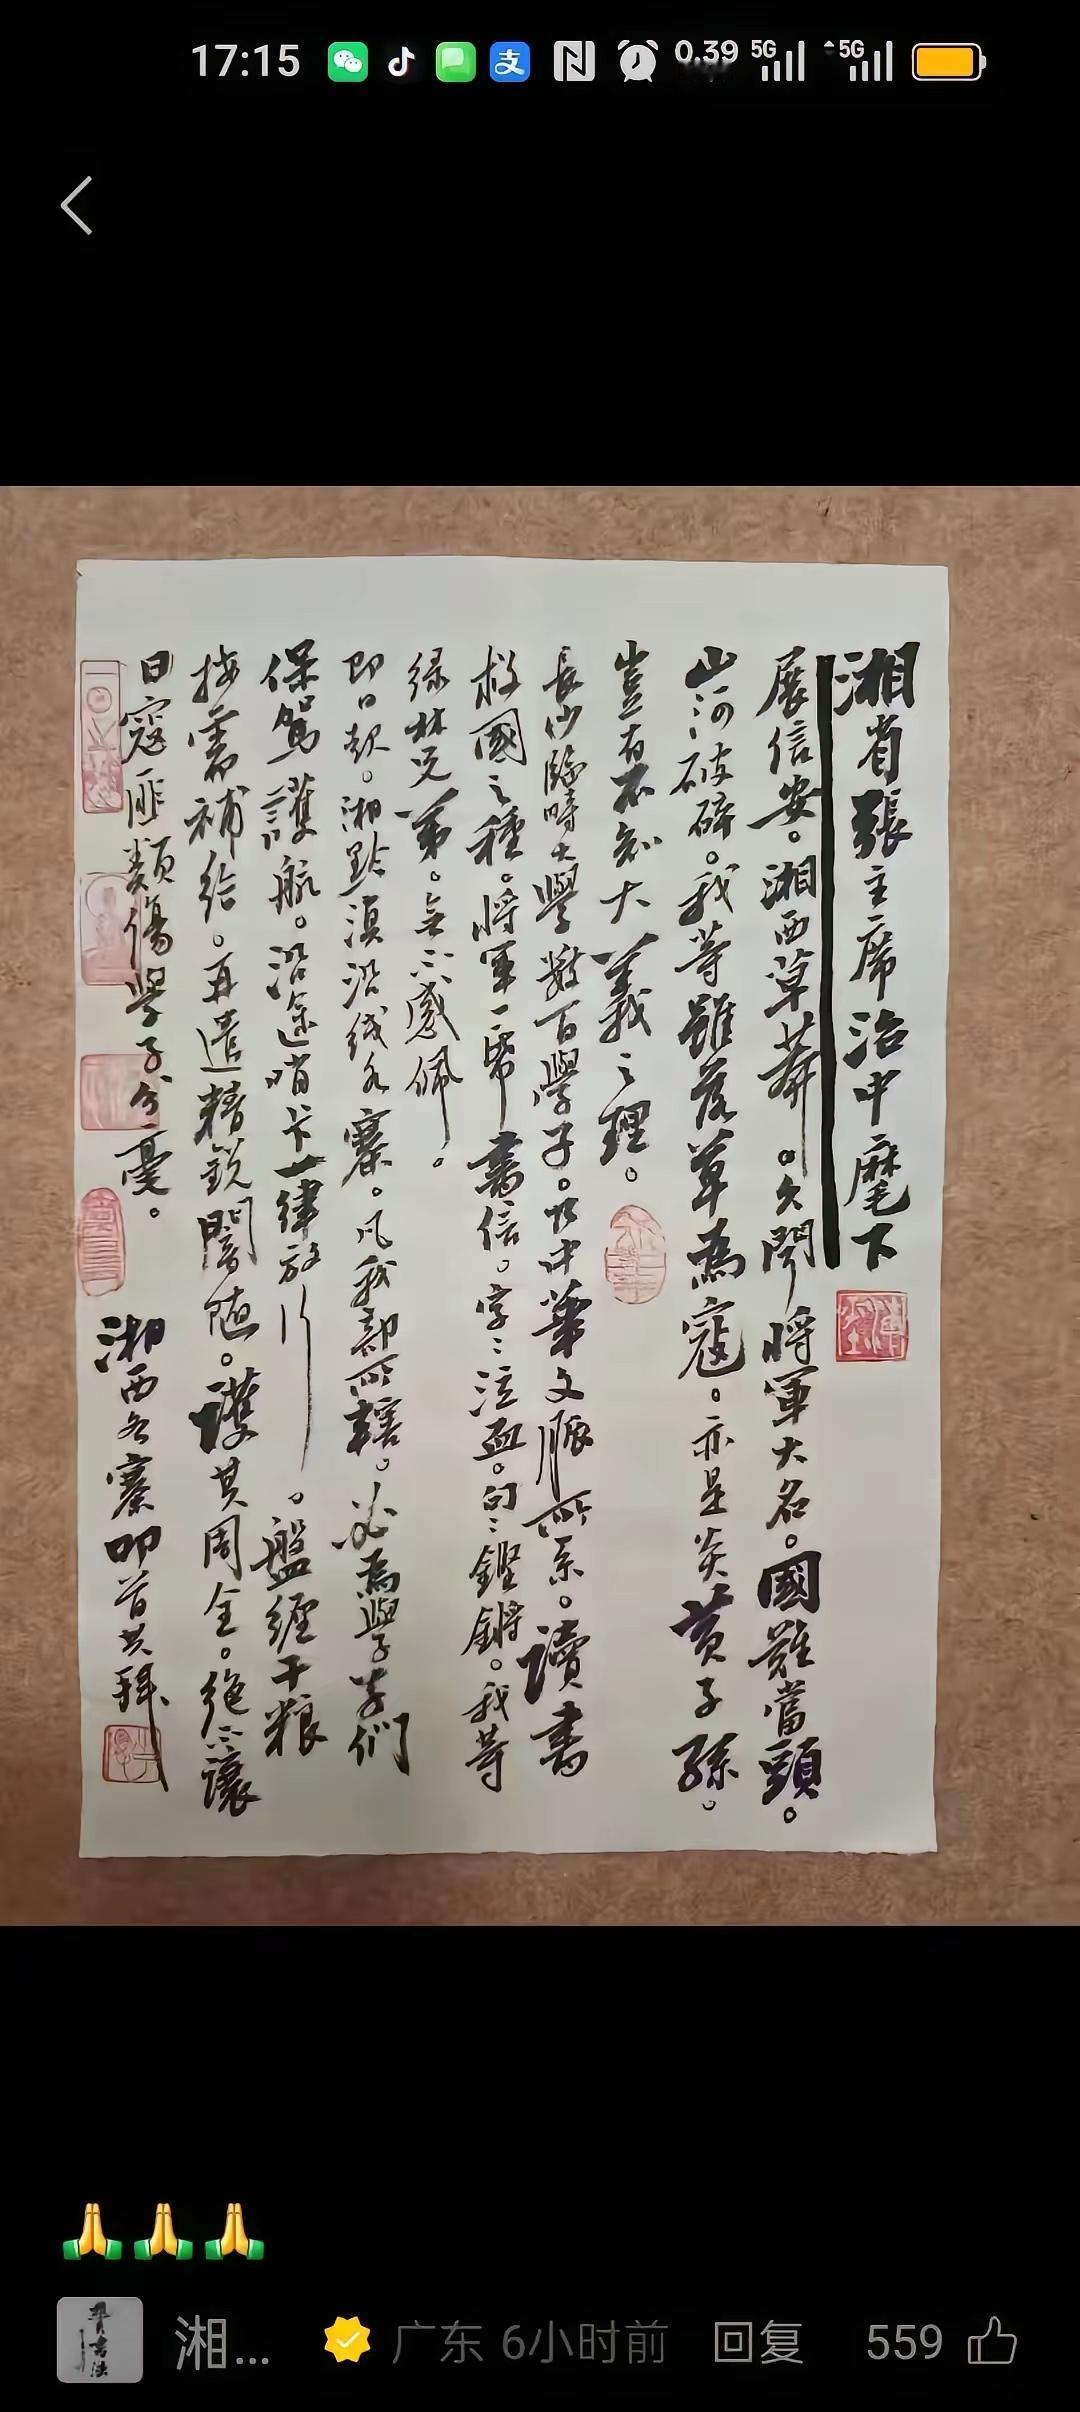 17:15
0.39 5G 5G
湘省張主席治中麾下
展信安。湘西草莽。久聞將軍大名。國難當頭。
山河破碎。我等雖落草為寇。亦是炎黃子孫。
豈有不知大義之理。
長沙臨時大學數百學子。乃中華文脈所系。讀書
救國之種。將軍一帋書信。字字泣血。句句鏗鏘。我等
绿林兄弟。無不感佩。
即日起。湘黔滇沿线各寨。凡我部所轄。必為學子们
保駕護航。沿途哨卡一律放行。盤缠干粮
按需補給。再遣精锐闇随。護其周全。絶不讓
日寇匪類傷學子分毫。
湘西各寨叩首共拜
🙏🙏🙏
湘... 广东 6小时前 回复 559